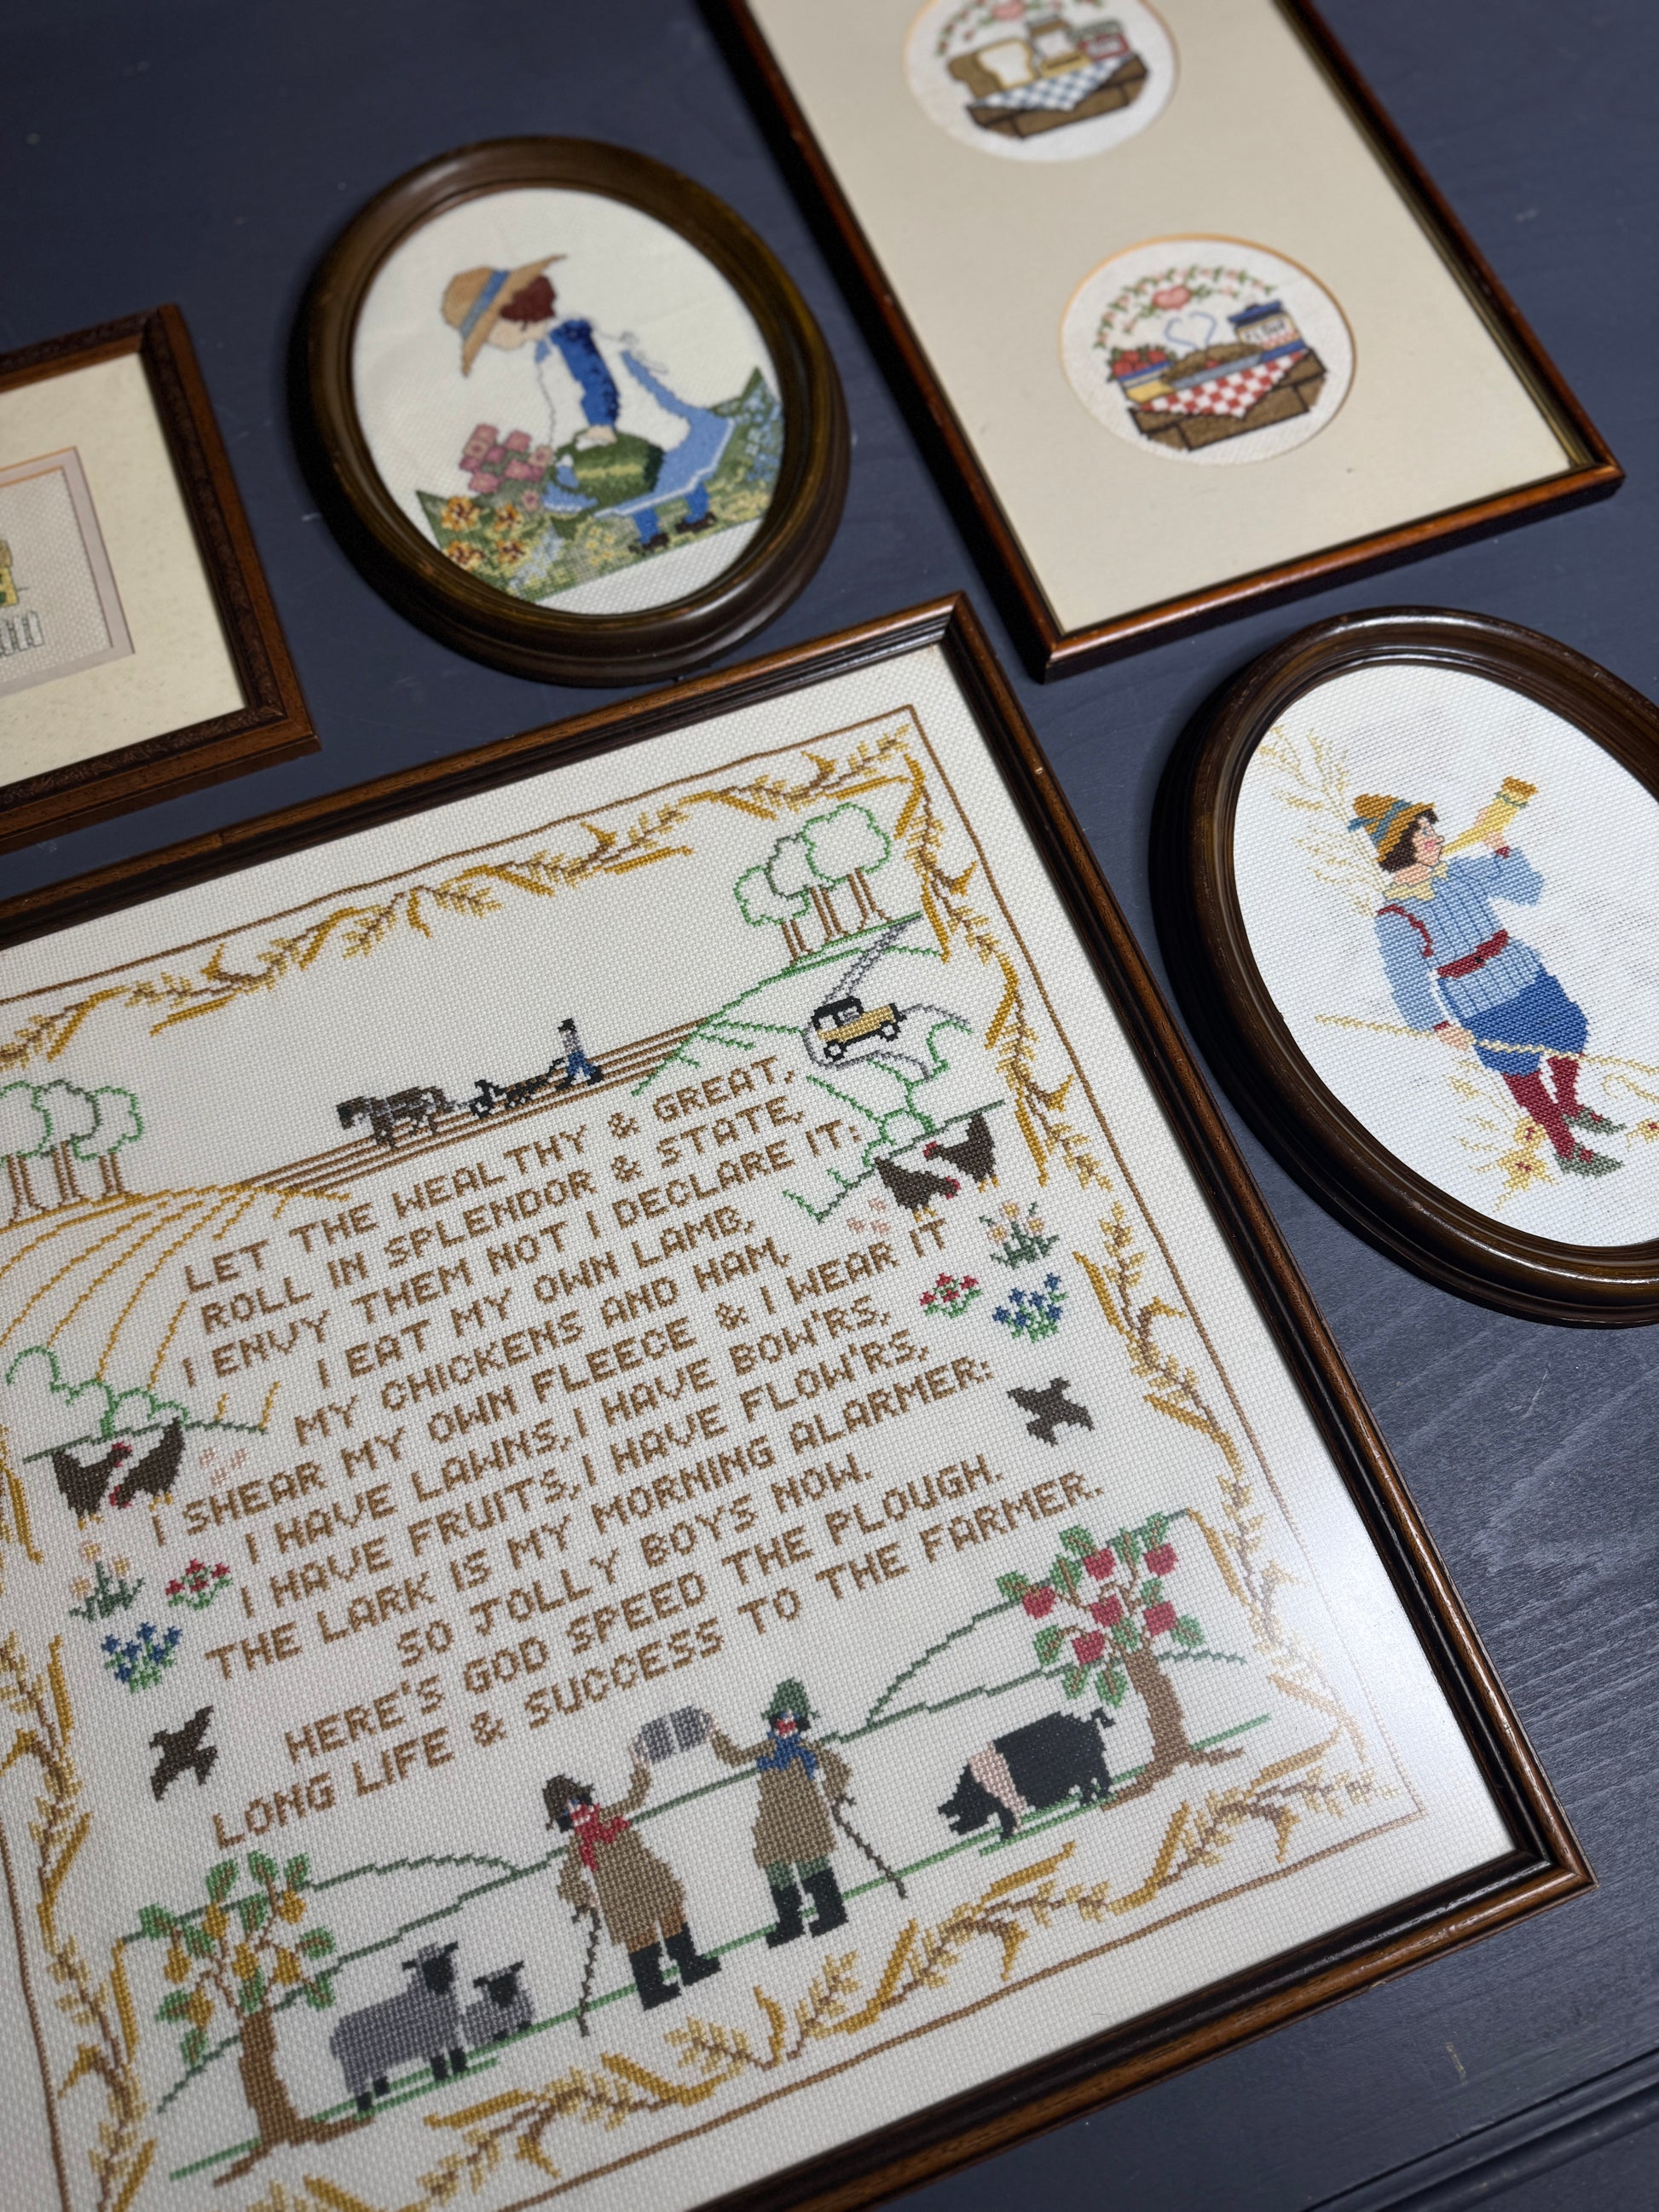 LET THE WEALTHY & GREAT,
ROLL IN SPLENDOR & STATE,
I ENVY THEM NOT I DECLARE IT:
I EAT MY OWN LAMB,
MY CHICKENS AND HAM,
I SHEAR MY OWN FLEECE & I WEAR IT
I HAVE LAWNS, I HAVE BOW'RS,
I HAVE FRUITS, I HAVE FLOW'RS,
THE LARK IS MY MORNING ALARMER:
SO JOLLY BOYS NOW.
HERE'S GOD SPEED THE PLOUGH.
LONG LIFE & SUCCESS TO THE FARMER.